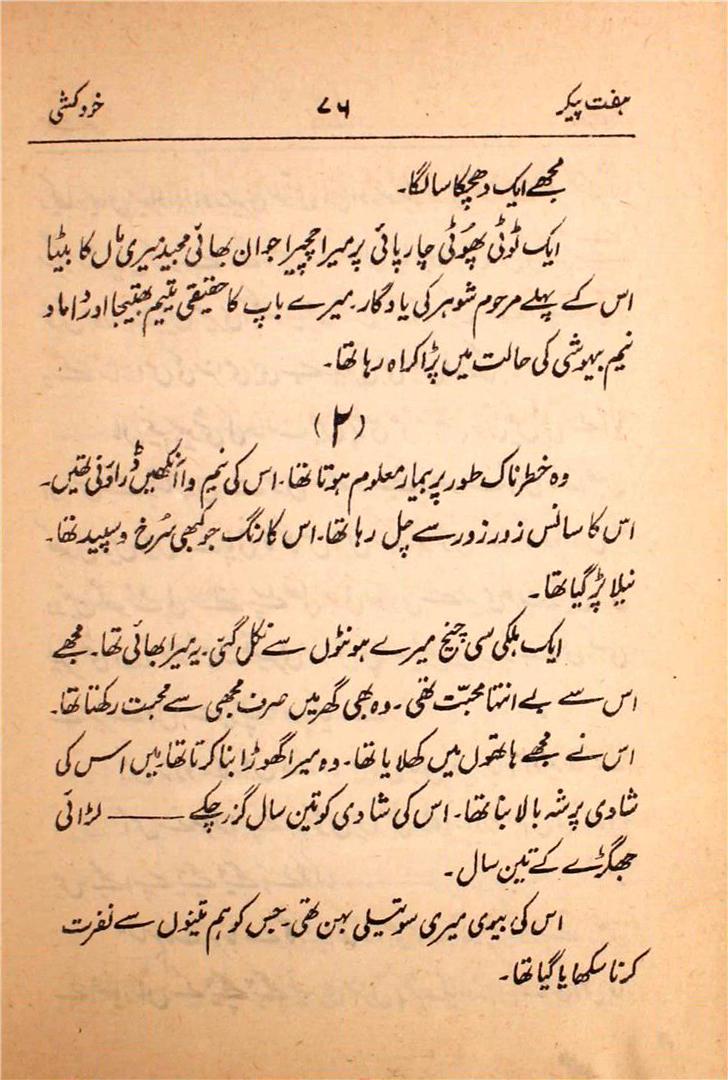 ہفت پیکر ۷۶ خودکشی
مجھے ایک دھچکا سا لگا۔
ایک ٹوٹی پھوٹی چارپائی پر میرا چچیرا جوان بھائی مجید میری ماں کا بیٹا
اس کے پہلے مرحوم شوہر کی یادگار۔ میرے باپ کا حقیقی یتیم بھتیجا اور داماد
نیم بیہوشی کی حالت میں پڑا کراہ رہا تھا۔
(۲)
وہ خطرناک طور پر بیمار معلوم ہوتا تھا۔ اس کی نیم وا آنکھیں ڈراؤنی تھیں۔
اس کا سانس زور زور سے چل رہا تھا۔ اس کا رنگ جو کبھی سُرخ و سپید تھا۔
نیلا پڑ گیا تھا۔
ایک ہلکی سی چیخ میرے ہونٹوں سے نکل گئی۔ یہ میرا بھائی تھا۔ مجھے
اس سے بے انتہا محبّت تھی۔ وہ بھی گھر میں صرف مجھی سے محبت رکھتا تھا۔
اس نے مجھے ہاتھوں میں کھلایا تھا۔ وہ میرا گھوڑا بنا کرتا تھا۔ میں اس کی
شادی پر شہ بالا بنا تھا۔ اس کی شادی کو تین سال گزر چکے ——— لڑائی
جھگڑے کے تین سال۔
اس کی بیوی میری سوتیلی بہن تھی۔ جس کو ہم تینوں سے نفرت
کرنا سکھایا گیا تھا۔